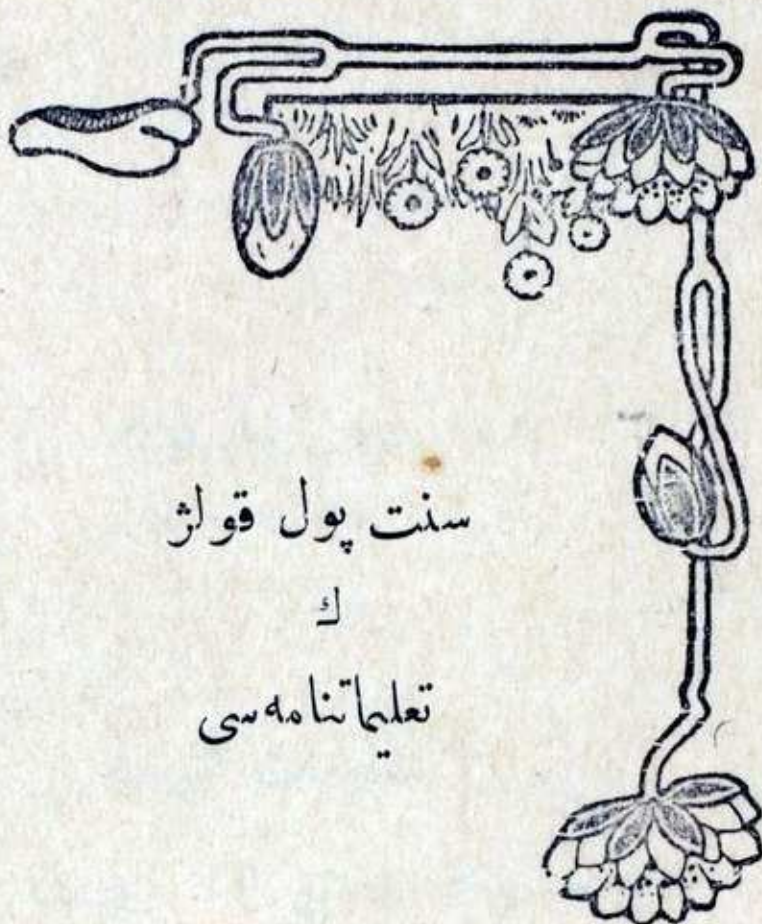 سنت پول قولژ
ڭ
تعلیماتنامه‌سی